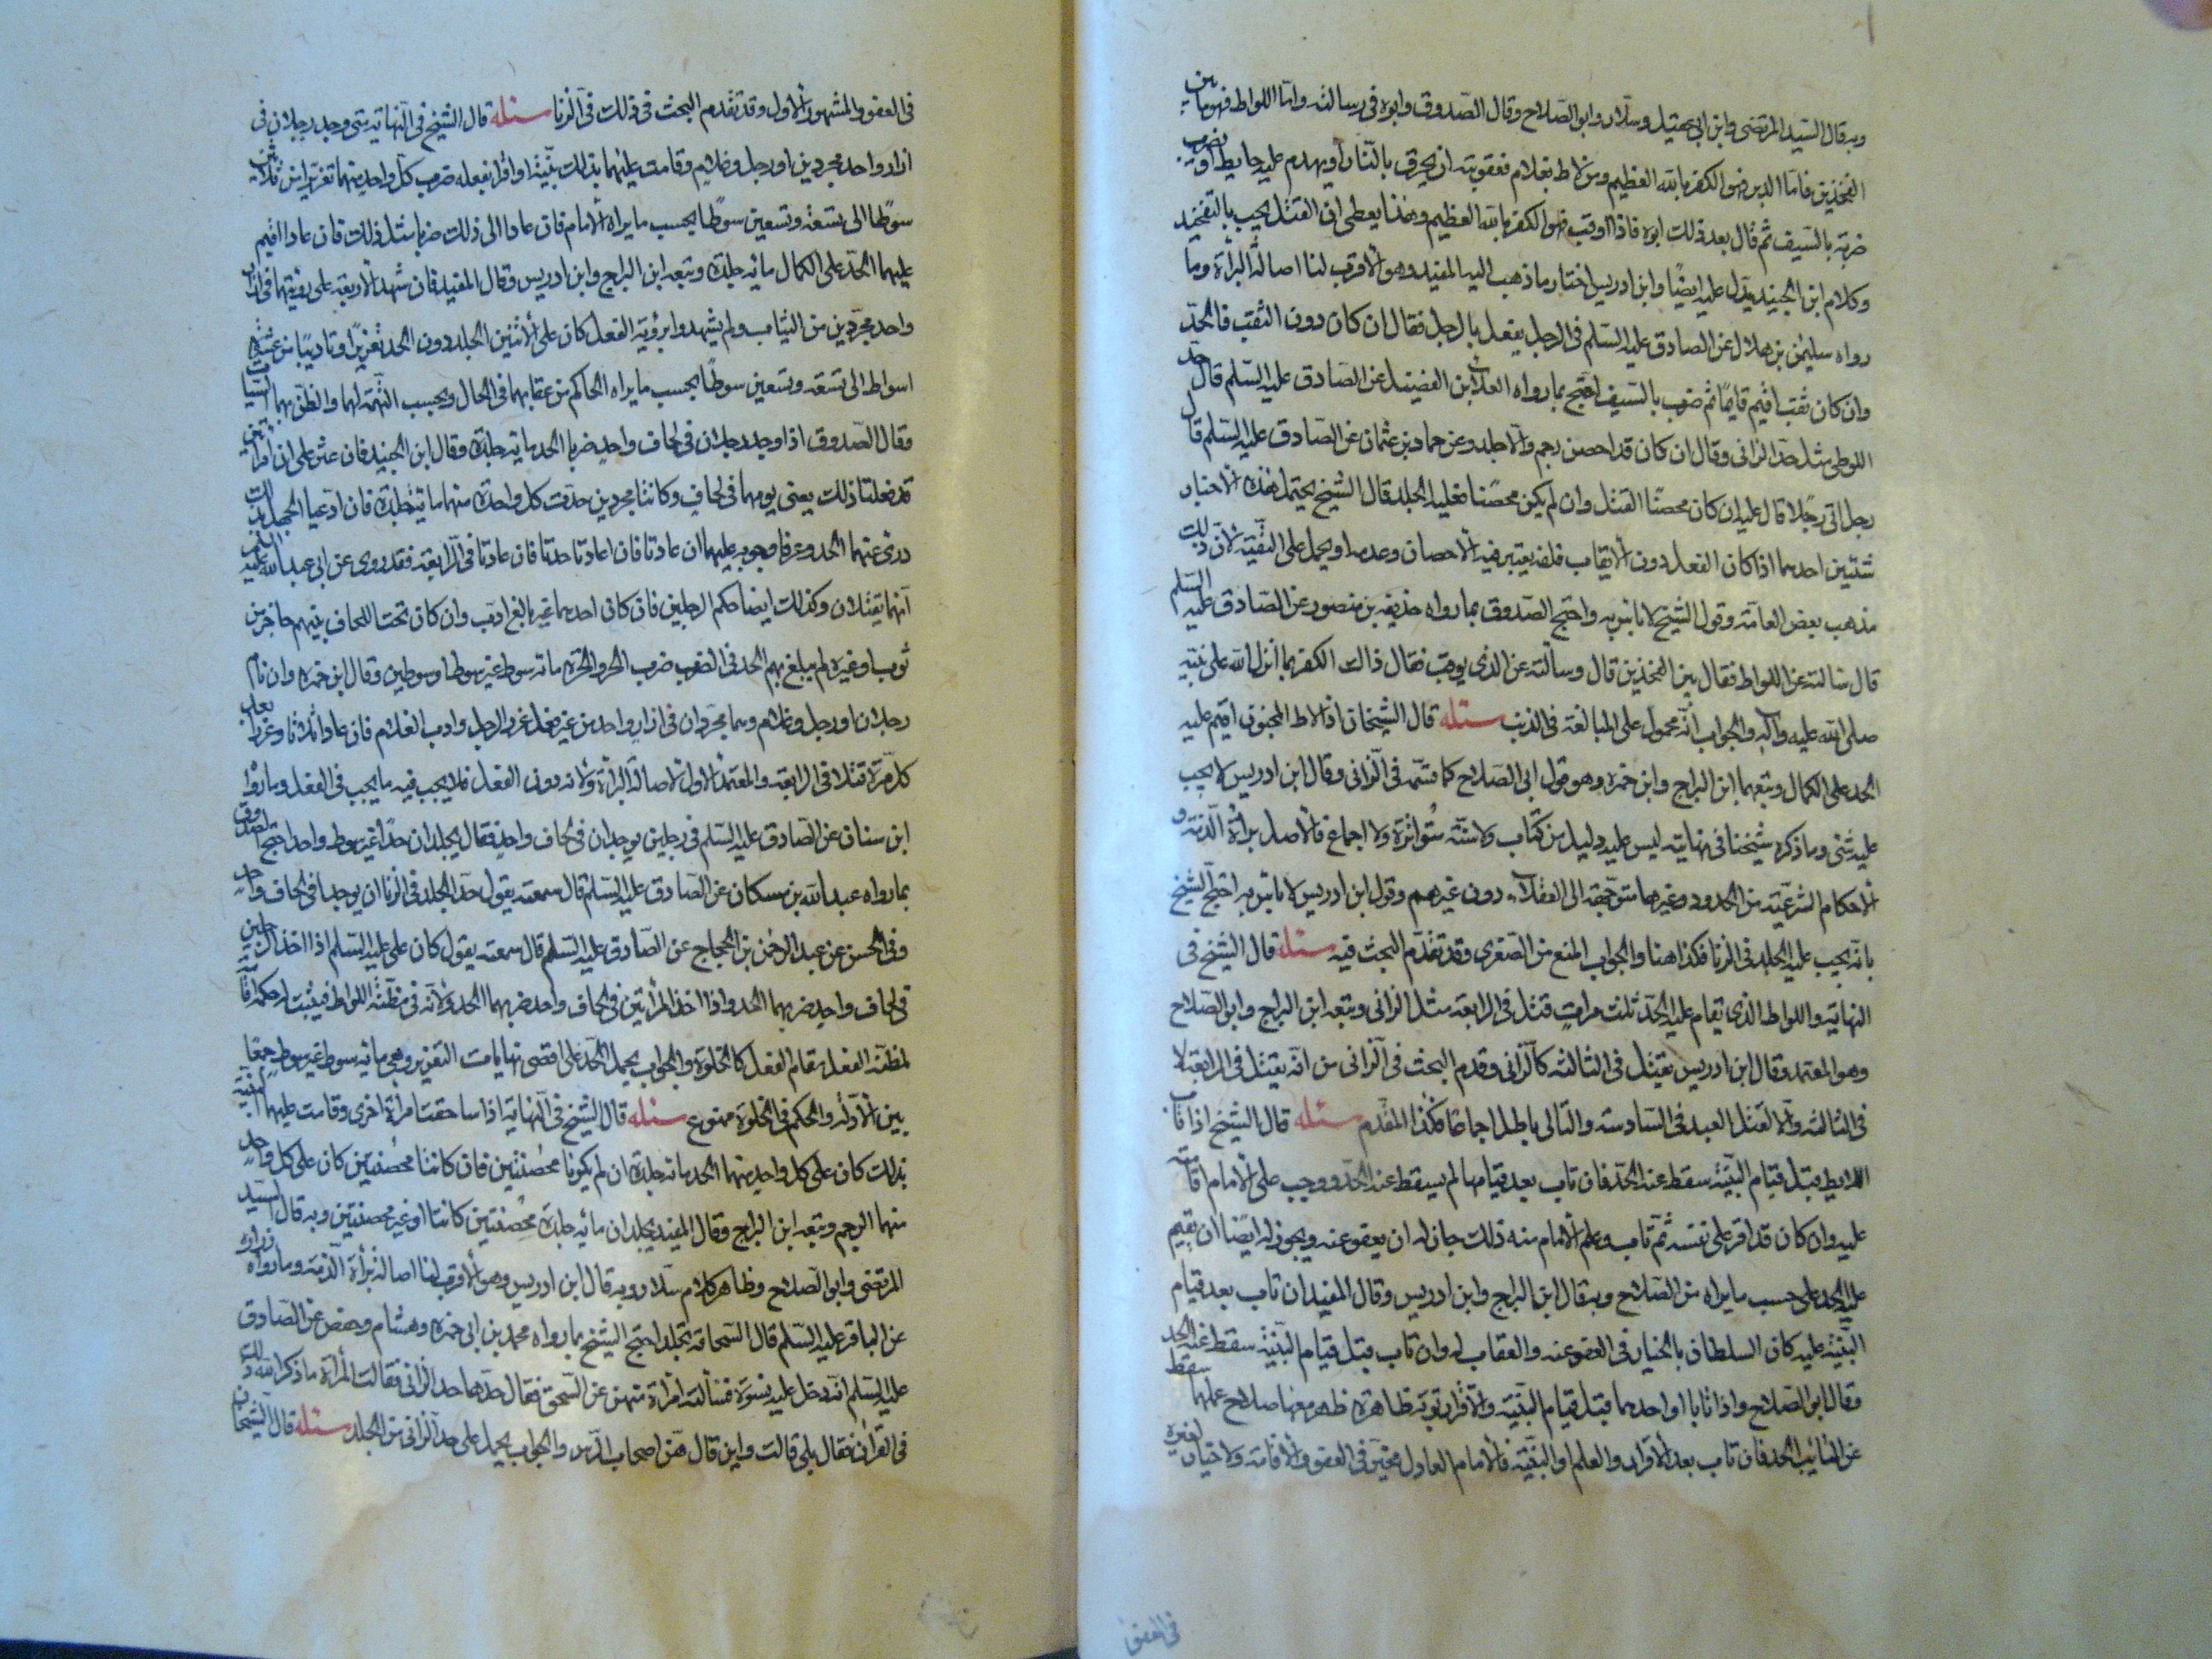 وبه قال السيد المرتضى وابن ابي عقيل وسلار وابو الصلاح وقال الصدوق وابوه في رسالته واما اللواط فهو ما بين
الفخذين فاما الدبر فهو الكفر بالله العظيم ومن لاط بغلام فعقوبته ان يحرق بالنار او يهدم عليه حايط او يضرب
ضربة بالسيف ثم قال بعد ذلك ابوه فاذا اوقب فهو الكفر بالله العظيم وهذا يعطي ان القتل يجب بالتفخيذ
وكلام ابن الجنيد يدل عليه ايضا وابن ادريس اختار ما ذهب اليه المفيد وهو الاقرب لنا اصالة البرأة وما
رواه سليمن بن هلال عن الصادق عليه السلم في الرجل يفعل بالرجل فقال ان كان دون الثقب فالحد
وان كان ثقب اقيم قايما ثم ضرب بالسيف احتج بما رواه العلا بن الفضيل عن الصادق عليه السلم قال حد
اللوطي مثل حد الزاني وقال ان كان قد احصن رجم والا جلد وعن حماد بن عثمان عن الصادق عليه السلم قال
رجل اتى رجلا قال عليه ان كان محصنا القتل وان لم يكن محصنا فعليه الجلد قال الشيخ يحتمل هذه الاخبار
شيئين احدهما اذا كان الفعل دون الايقاب فانه يعتبر فيه الاحصان وعدمه او يحمل على التقية لان ذلك
مذهب بعض العامة وقول الشيخ لا باس به واحتج الصدوق بما رواه حذيفة بن منصور عن الصادق عليه السلم
قال سالته عن اللواط فقال بين الفخذين قال وسالته عن الذي يوقب فقال ذاك الكفر بما انزل الله على نبيه
صلى الله عليه واله والجواب انه محمول على المبالغة في الذنب مسئله قال الشيخان اذا لاط المجنون اقيم عليه
الحد على الكمال وتبعهما ابن البراج وابن حمزه وهو قول ابي الصلاح كما قسمه في الزاني وقال ابن ادريس لا يجب
عليه شئ وما ذكره شيخنا في نهايته ليس عليه دليل من كتاب ولا سنة متواترة ولا اجماع فالاصل براة الذمة و
الاحكام الشرعية من الحدود وغيرها متوجهة الى العقلاء دون غيرهم وقول ابن ادريس لا باس به احتج الشيخ
بانه يجب عليه الجلد في الزنا فكذا هنا والجواب المنع من الصغرى وقد تقدم البحث فيه مسئله قال الشيخ في
النهاية واللواط الذي يقام عليه الحد ثلث مرات قتل في الرابعة مثل الزاني وتبعه ابن البراج وابو الصلاح
وهو المعتمد وقال ابن ادريس يقتل في الثالثة كالزاني وقدم البحث في الزاني من انه يقتل في الرابعة لا
في الثالثة والا لقتل العبد في السادسة والتالي باطل اجماعا فكذا المقدم مسئله قال الشيخ اذا تاب
اللايط قبل قيام البينة سقط عنه الحد فان تاب بعد قيامها لم يسقط عنه الحد ووجب على الامام اقامته
عليه وان كان قد اقر على نفسه ثم تاب وعلم الامام منه ذلك جاز له ان يعفو عنه ويجوز له ايضا ان يقيم
عليه الحد على حسب ما يراه من الصلاح وبه قال ابن البراج وابن ادريس وقال المفيد ان تاب بعد قيام
البينة عليه كان السلطان بالخيار في العفو عنه والعقاب له وان تاب قبل قيام البينة سقط عنه الحد
وقال ابو الصلاح واذا تابا او احدهما قبل قيام البينة والاقرار توبة ظاهرة ظهر معها صلاح عملهما سقط
عن التائب الحد فان تاب بعد الاقرار والعلم او البينة فالامام العادل مخير في العفو والاقامة ولا خيار لغيره
في العفو
في العفو والمشهور الاول وقد تقدم البحث في ذلك في الزنا مسئله قال الشيخ في النهاية متى وجد رجلان في
ازار واحد مجردين او رجل وغلام وقامت عليهما بذلك بينة او اقرا بفعله ضرب كل واحد منهما تعزيرا من ثلاثين
سوطا الى تسعة وتسعين سوطا بحسب ما يراه الامام فان عادا الى ذلك ضربا مثل ذلك فان عادا اقيم
عليهما الحد على الكمال مائة جلدة وتبعه ابن البراج وابن ادريس وقال المفيد فان شهد الاربعة على رؤيتهما في ازار
واحد مجردين من الثياب ولم يشهدوا برؤية الفعل كان على الاثنين الجلد دون الحد تعزيرا وتاديبا من عشرة
اسواط الى تسعة وتسعين سوطا بحسب ما يراه الحاكم من عقابهما في الحال وبحسب التهمة لهما والظن بهما السيات
وقال الصدوق اذا وجد رجلان في لحاف واحد ضربا الحد ماية جلدة وقال ابن الجنيد فان عثر على ان امرأتين
قد فعلتا ذلك يعني يومهما في لحاف وكانتا مجردين حدت كل واحدة منهما ماية جلدة فان ادعيا الجهل بذلك
درئ عنهما الحد وعرفا وجوبه عليهما ان عادتا فان اعادتا حدتا فان عادتا في الرابعة فقد روى عن ابي عبد الله عليه السلم
انهما يقتلان وكذلك ايضا حكم الرجلين فان كان احدهما غير بالغ ادب وان كان تحت اللحاف بينهم حاجز من
ثوب او غيره لم يبلغ بهم الحد في الضرب ضرب الحر والحرة مائة سوط غير سوط او سوطين وقال ابن حمزه وان نام
رجلان او رجل وغلام وهما مجردان في ازار واحد من غير فعل عزر الرجل وادب الغلام فان عادا ثلاثا وعزرا بعد
كل مرة قتلا في الرابعة والمعتمد الاول لاصالة البرأة ولانه دون الفعل فلا يجب فيه ما يجب في الفعل وما رواه
ابن سنان عن الصادق عليه السلم في رجلين يوجدان في لحاف واحد فقال يجلدان حدا غير سوط واحد احتج الصدوق
بما رواه عبد الله بن مسكان عن الصادق عليه السلم قال سمعته يقول حد الجلد في الزنا ان يوجدا في لحاف واحد
وفي الحسن عن عبد الرحمن بن الحجاج عن الصادق عليه السلم قال سمعته يقول كان علي عليه السلم اذا اخذ الرجلين
في لحاف واحد ضربهما الحد واذا اخذ المرأتين في لحاف واحد ضربهما الحد ولانه في مظنة اللواط فيثبت له حكمه اقامة
لمظنة الفعل مقام الفعل كالخلوة والجواب يحمل الحد على اقصى نهايات التعزير وهي مائة سوط غير سوط جمعا
بين الادلة والحكم في الخلوة ممنوع مسئله قال الشيخ في النهاية اذا ساحقت امرأة اخرى وقامت عليهما البينة
بذلك كان على كل واحد منهما الحد مائة جلدة ان لم يكونا محصنتين فان كانتا محصنتين كان على كل واحد
منهما الرجم وتبعه ابن البراج وقال المفيد يجلدان مائة جلدة محصنتين كانتا او غير محصنتين وبه قال السيد
المرتضى وابو الصلاح وظاهر كلام سلار وبه قال ابن ادريس وهو الاقرب لنا اصالة برأة الذمة وما رواه زراره
عن الباقر عليه السلم قال السحاقة تجلد احتج الشيخ بما رواه محمد بن ابي حمزه وهشام وحفص عن الصادق
عليه السلم انه دخل عليه نسوة فسألته امرأة منهن عن السحق فقال حدها حد الزاني فقالت المرأة ما ذكر الله ذلك
في القران فقال بلى قالت واين قال هن اصحاب الرس والجواب يحمل على حد الزاني من الجلد مسئله قال الشيخان